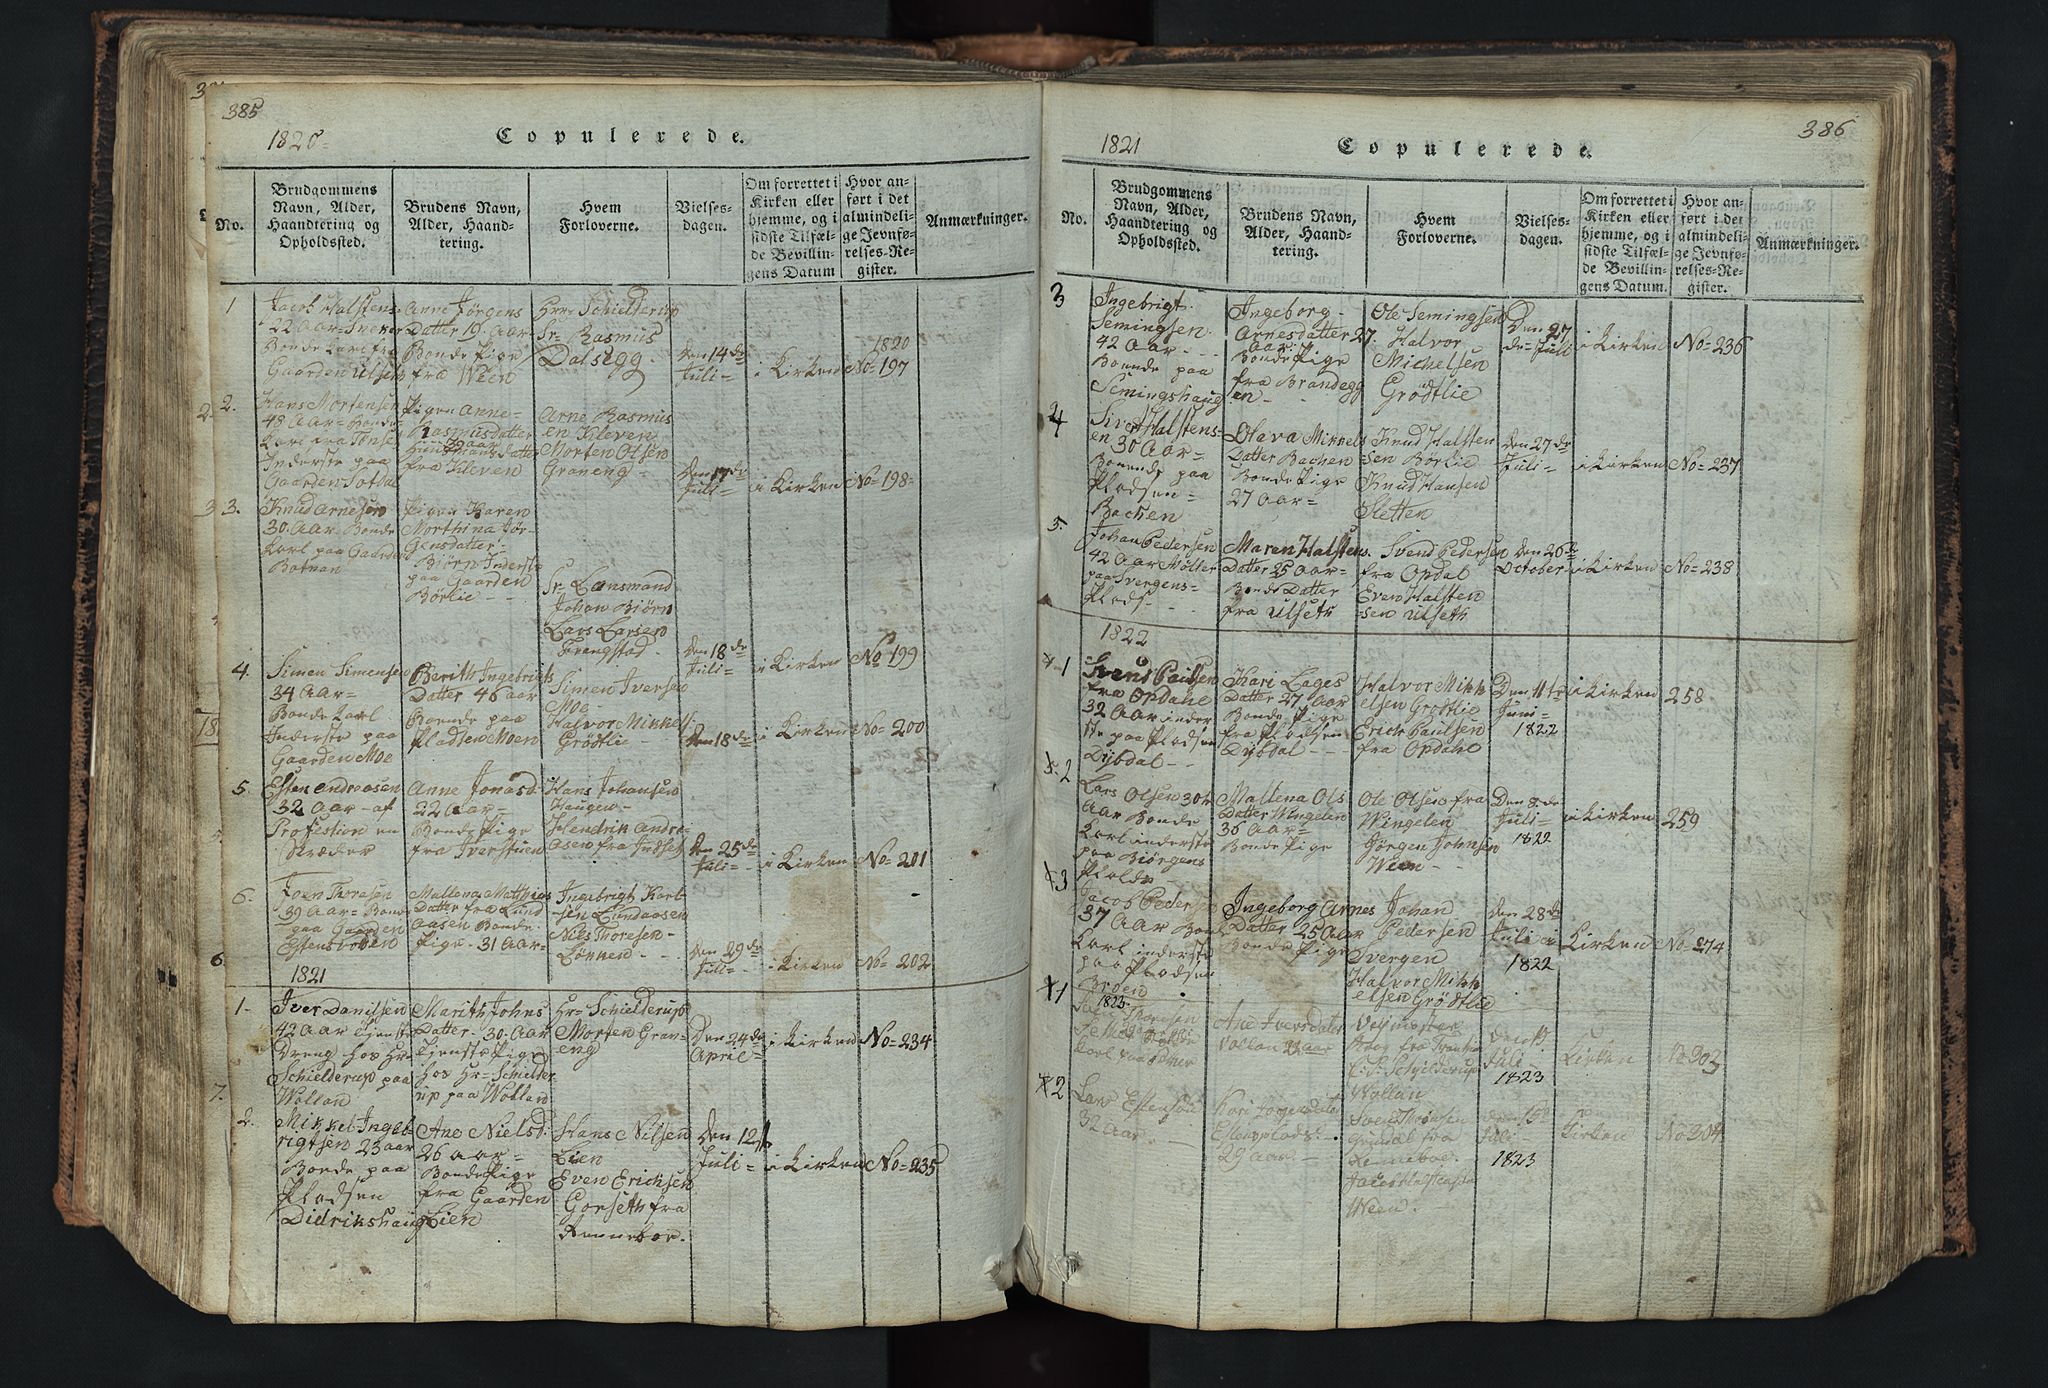 385
1820
Copulerede.
No.
Brudgommens Navn, Alder, Haandtering og Opholdssted.
Brudens Navn, Alder, Haandtering.
Hvem Forloverne.
Vielsesdagen.
Om forrettet i Kirken eller hjemme, og i sidste Tilfælde Bevillingens Datum
Hvor anført i det almindelige Jevnførelses-Register.
Anmærkninger.
1
Jacob Halstens
22 Aar
Bonde Karl fra
Gaarden Ulseth
Anne Jørgens
Datter 19 Aar
Bonde Pige
fra Ween
Hrr Schielderup
Sr Rasmus
Dalsegg
Den 14de
Juli
i Kirken
1820
No 197
2.
Hans Mortensen
48 Aar Bonde
Karl fra Tønset
Inderste paa
Gaarden
Pigen Anne
Rasmusdatter
fra Kleven
Arne Rasmus
en Kleven
Morten Olsen
Graneng
Den 17de
Juli
i Kirken
No 198
3.
Knud Arnesen
30 Aar Bonde
Karl paa Gaarden
Botnan
Pigen Karen
Morthina Jør-
gensdatter
Biørn Inderste
paa Gaarden
Børlie
Sr Lansmand
Johan Biørn
Lars Larsen
Den 18de
Juli
i Kirken
No 199
4.
Simen Simensen
34 Aar
Bonde Karl
Inderste paa
Gaarden Moe
Berith Ingebrigts
Datter 46 aar
Boende paa
Pladsen Moen
Simen Iversen
Moe
Halvor Mikkels
Grødtlie
Den 18de
i Kirken
No 200
5.
Esten Andreasen
32 Aar af
Profestion en
Skræder
Anne Jonasd
22 aar
Bonde Pige
fra Iverstuen
Hans Johansen
Haugen
Hendrik Andre-
asen fra Indset
Den 25de
Juli
i Kirken
No 201
6.
Joen Thoresen
39 Aar Bonde
paa Gaarden
Estensvolden
Mallena Matthies
Datter fra Lund
aasen Bonde
Pige 31 Aar
Ingebrigt Karl
sen Lundaasen
Nils Thoresen
Lønnen
Den 29de
Juli
i Kirken
No 202
1821
1
Iver Danilsen
42 Aar Tjenste
Dreng hos Hr
Schielderup paa
Wollan
Marith Johns
Datter 30 Aar
Tjenste Pige
hos Hr Schielder
up paa Wollan
Hr Schielderup
Morten Gran-
eng
Den 24de
April
i Kirken
No 234
2.
Mikkel Ingeb-
rigtsen 23 aar
Boende paa
Pladsen
Didrikshaug
Ane Nielsd
26 aar
Bonde Pige
fra Gaarden
Lien
Hans Nilsen
Lien
Even Ericksen
Gorseth fra
Renneboe
Den 12te
Juli
i Kirken
No 235
1821
Copulerede.
386
No.
Brudgommens Navn, Alder, Haandtering og Opholdssted.
Brudens Navn, Alder, Haandtering.
Hvem Forloverne.
Vielsesdagen.
Om forrettet i Kirken eller hjemme, og i sidste Tilfælde Bevillingens Datum.
Hvor anført i det almindelige Jevnførelses-Register.
Anmærkninger.
3
Ingebrigt
Semingsen
42 Aar
Boende paa
Semingshaug
Ingeborg
Arnesdatter 27
Aar
Bonde Pige
fra Brandegg
en
Ole Semingsen
Halvor
Michelsen
Grødtlie
Den 27
de Juli
i Kirken
No 236
4
Siver Halstens-
en 30 Aar
Boende paa
Pladsen
Bachen
Olava Mikkels
Datter Bachen
Bonde Pige
27 Aar
Knud Halsten
sen Børlie
Knud Hansen
Sletten
Den 27de
Juli
i Kirken
No 237
5.
Johan Pedersen
42 Aar Møller
paa Svergens-
Plads
Maren Halstens
Datter 25 Aar
Bonde Datter
fra Ulseth
Svend Pedersen
fra Opdal
Even Halsten
sen Ulseth
Den 26de
October
i Kirken
No 238
1822
1
Svend Paulsen
fra Opdahl
32 Aar inder
ste paa Pladsen
Dybdal
Kari Lages
Datter 27 Aar
Bonde Pige
fra Pladsen
Dybdal
Halvor Mikk
elsen Grødtlie
Erick Paulsen
fra Opdahl
Den 11te
Juni
1822
i Kirken
258
2
Lars Olsen 30te
Aar Bonde
Karl inderste
paa Biørgens
Plads
Mallena Ols
Datter Wingelen
36 Aar
Bonde Pige
Ole Olsen fra
Wingelen
Jørgen Johnsen
Ween
Den 8de
Juli
1822
i Kirken
259
3
Jacob Pedersen
37 Aar Bonde
Karl inderste
paa Pladsen
Broen
Ingeborg Arnes
Datter 25 Aar
Bonde Pige
Johan
Pedersen
Svergen
Halvor Mikk
elsen Grødtlie
Den 28de
Juli
1822
i Kirken
No 274
1823
1
Ane Iversdater
Vollan 22 aar
Wollan
Juli
1823
Kirken
No 303
2
Lars Estensen
32 Aar.
Estensplads
29 aar
Renneboe
Ween
Juli
1823
Kirken
No 304